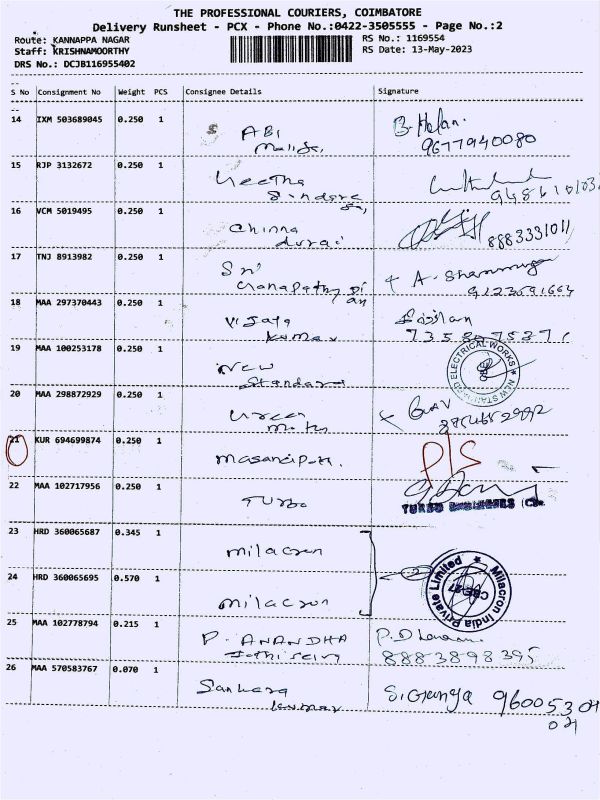 THE PROFESSIONAL COURIERS, COIMBATORE
Delivery Runsheet - PCX - Phone No.:0422-3505555 - Page No.:2
Route: KANNAPPA NAGAR RS No.: 1169554
Staff: KRISHNAMOORTHY RS Date: 13-May-2023
DRS No.: DCJB116955402
S No Consignment No Weight PCS Consignee Details Signature
14 IXM 503689045 0.250 1 ABI B. Helan.
9677940080
15 RJP 3132672 0.250 1 Geetha
16 VCM 5019495 0.250 1 Chinna
durai 8883331011
17 TNJ 8913982 0.250 1 Sri A. Shanmuga
Ganapathy 9123591664
18 MAA 297370443 0.250 1 Vijaya
Kumar
19 MAA 100253178 0.250 1 New
Standard
NEW STANDARD ELECTRICAL WORKS
20 MAA 298872929 0.250 1 Green
21 KUR 694699874 0.250 1 P/S
22 MAA 102717956 0.250 1 Turbo
TURBO ENGINEERS
23 HRD 360065687 0.345 1 milacron
24 HRD 360065695 0.570 1 milacron
Milacron India Private Limited
CBE-27
25 MAA 102778794 0.215 1 P. ANANDHA
8883898395
26 MAA 570583767 0.070 1 Sankara S. Ganga 96005304
Kumar 04